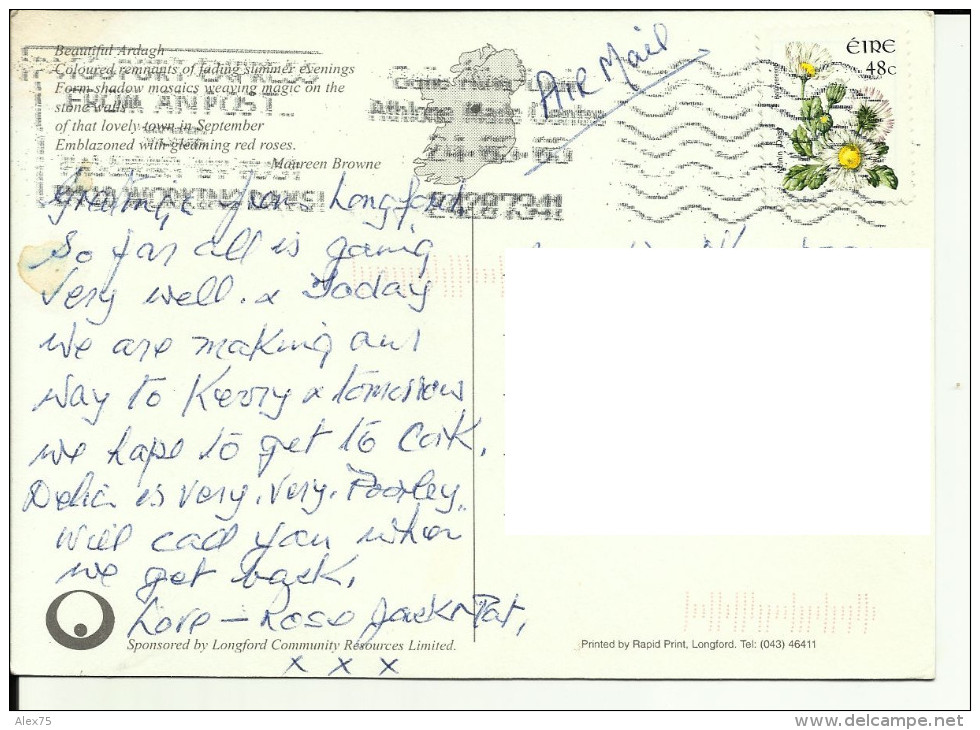 Beautiful Ardagh
Coloured remnants of fading summer evenings
Form shadow mosaics weaving magic on the
stone walls
of that lovely town in September
Emblazoned with gleaming red roses.
Maureen Browne
FROM AN POST
AIR MAIL
ÉIRE
48c
Greetings from Longford
So far all is going
Very well. & Today
we are making our
way to Kerry & tomorrow
we hope to get to Cork.
Delia is very, very, Poorley.
will call you when
we get back.
Love – Rose Jack & Pat,
x x x
Sponsored by Longford Community Resources Limited.
Printed by Rapid Print, Longford. Tel: (043) 46411
Alex75
www.delcampe.net